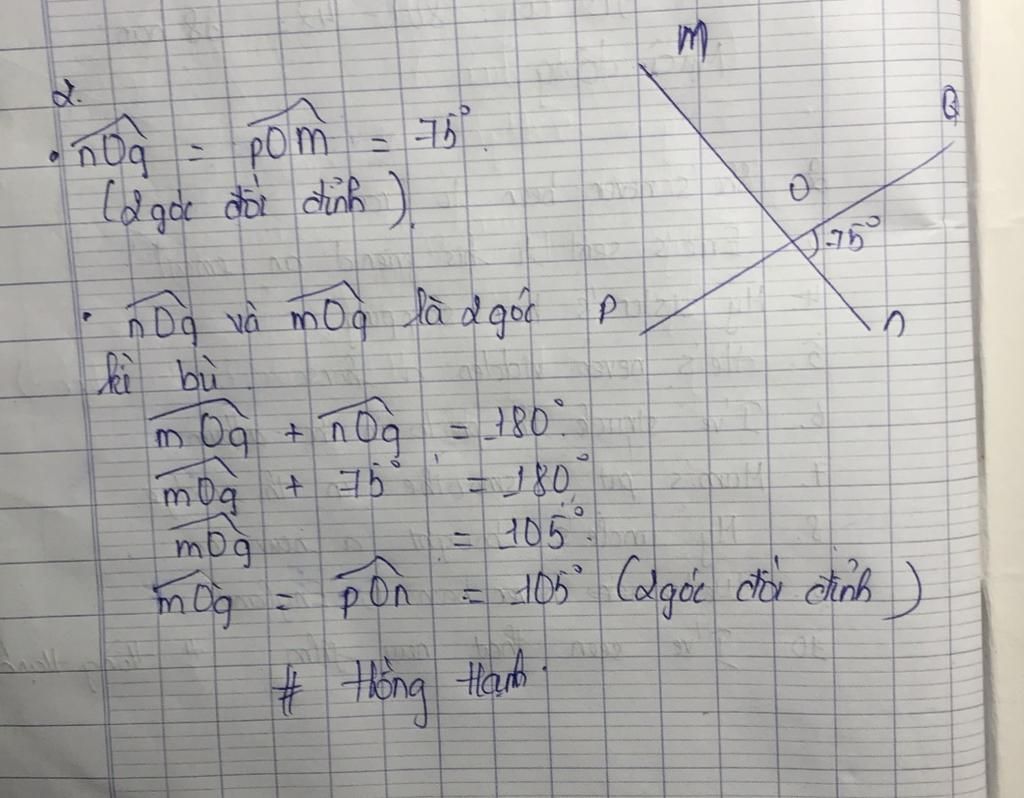 2.
• nOq = pOm = 75°
(2 góc đối đỉnh)
• nOq và mOq là 2 góc
kì bù
mOq + nOq = 180°
mOq + 75° = 180°
mOq = 105°
mOq = pOn = 105° (2 góc đối đỉnh)
# Hồng Hạnh
M
Q
O
75°
P
n